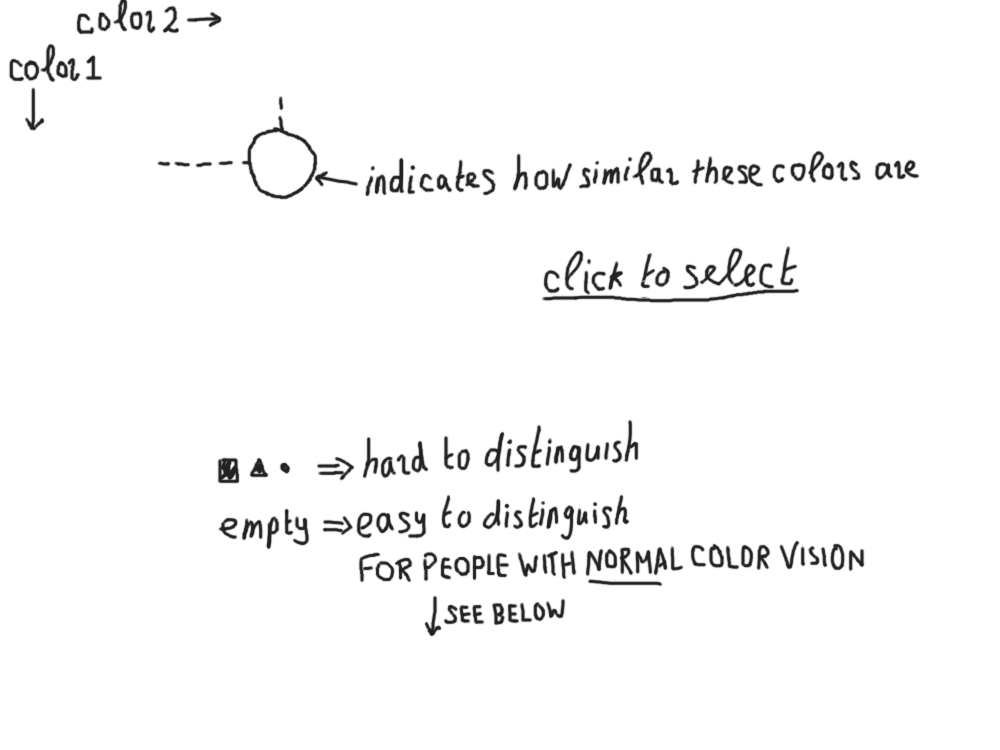 color2 →
color1
↓
← indicates how similar these colors are
click to select
■ ▲ • ⇒ hard to distinguish
empty ⇒ easy to distinguish
FOR PEOPLE WITH NORMAL COLOR VISION
↓ SEE BELOW